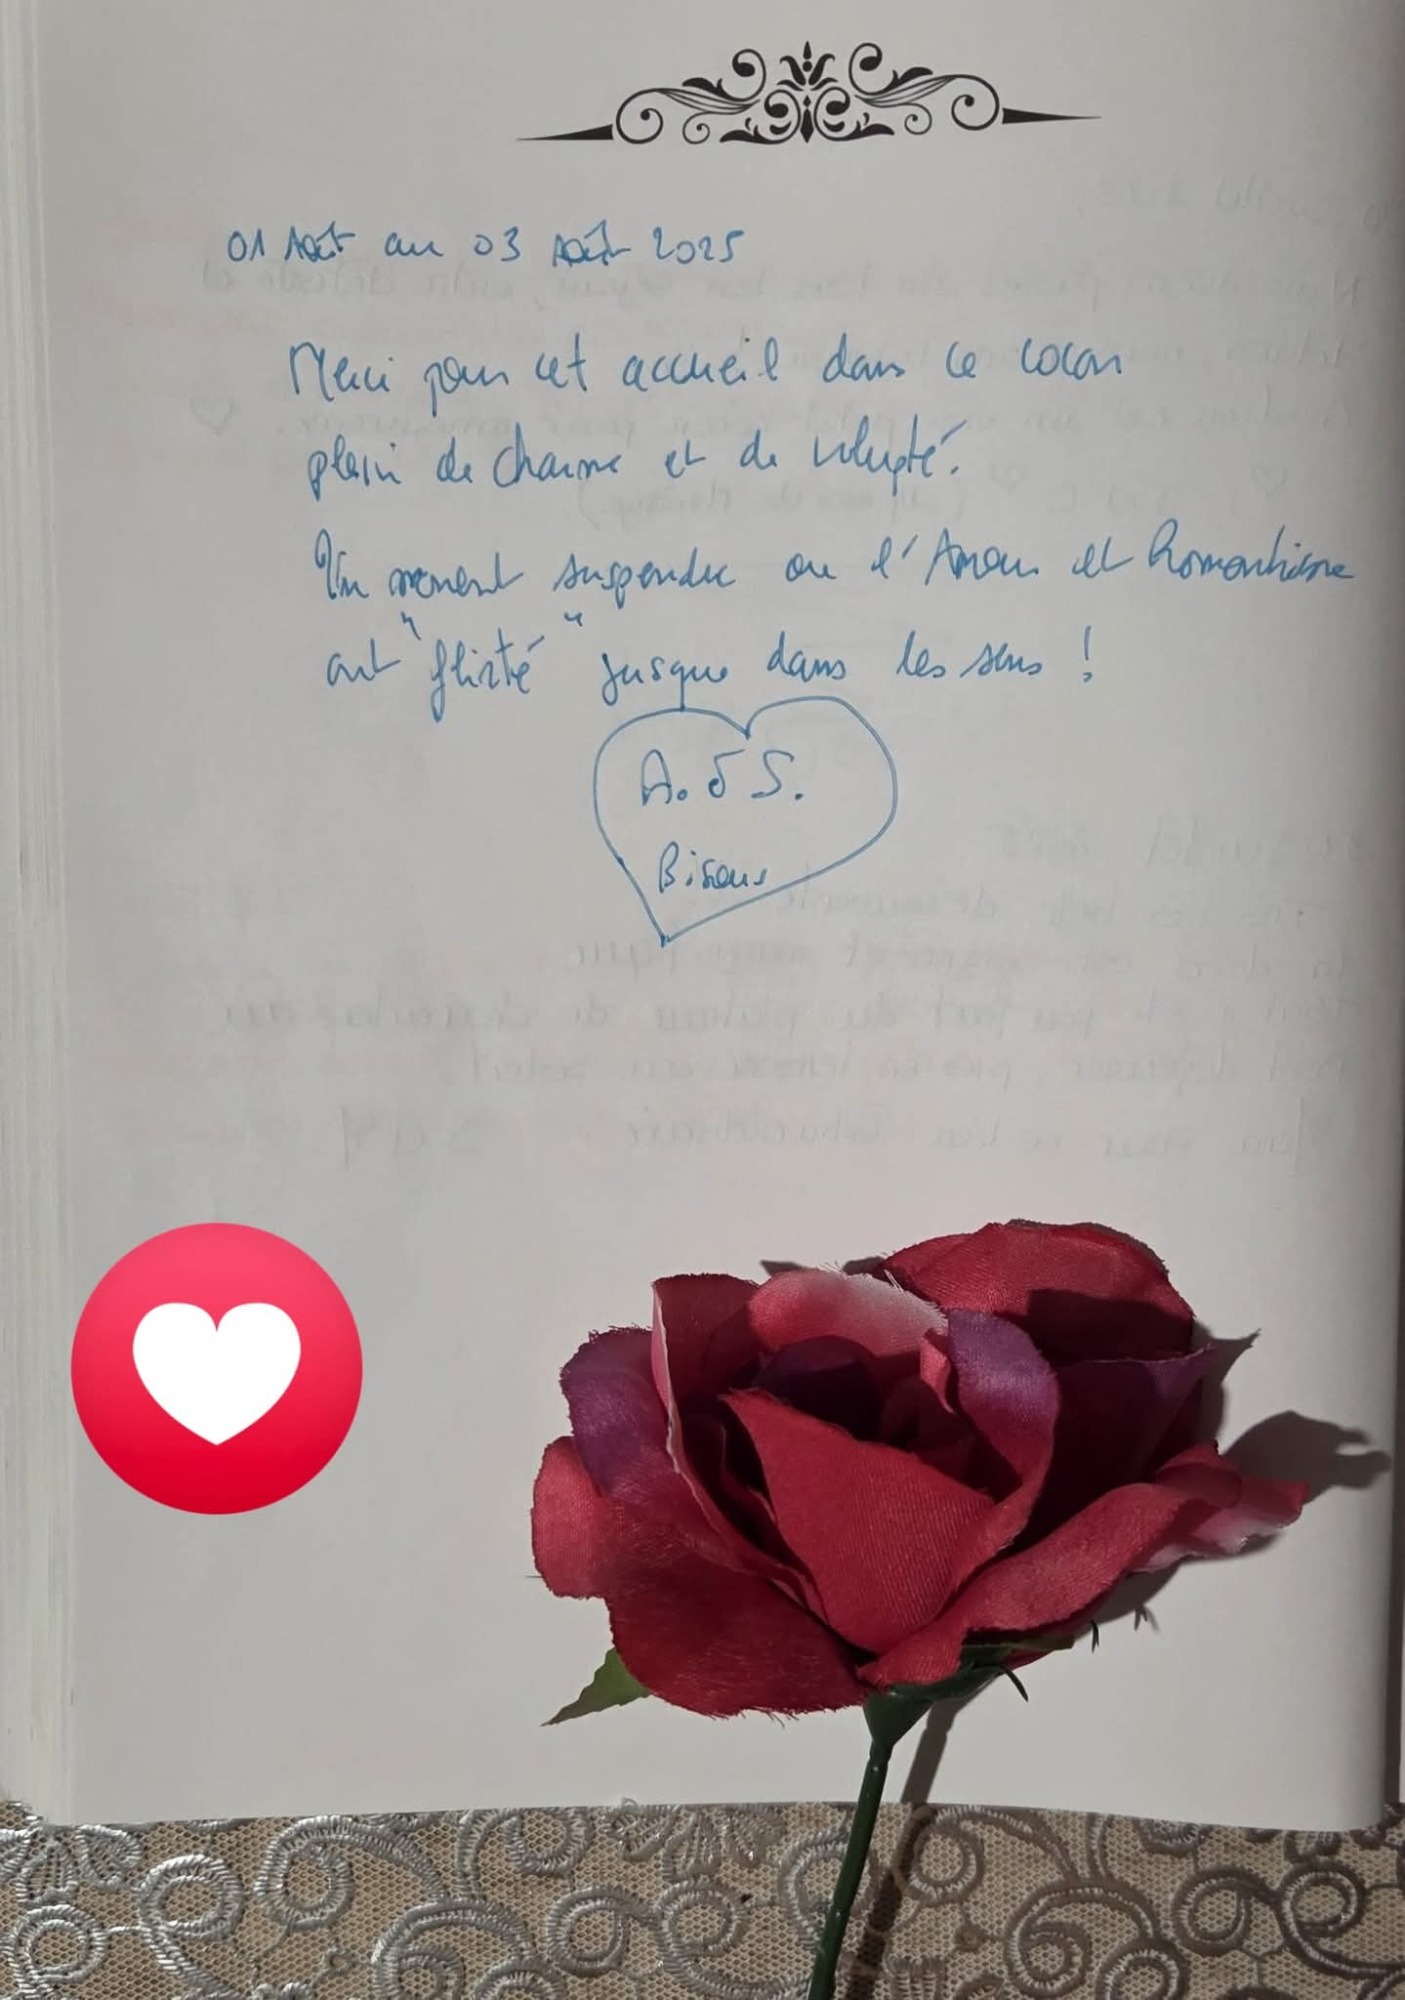 01 Août au 03 Août 2025
Merci pour cet accueil dans ce cocon
plein de charme et de volupté.
Un moment suspendu ou l'Amour et Romantisme
ont "flirté" jusque dans les sens !
A. & S.
Bisous